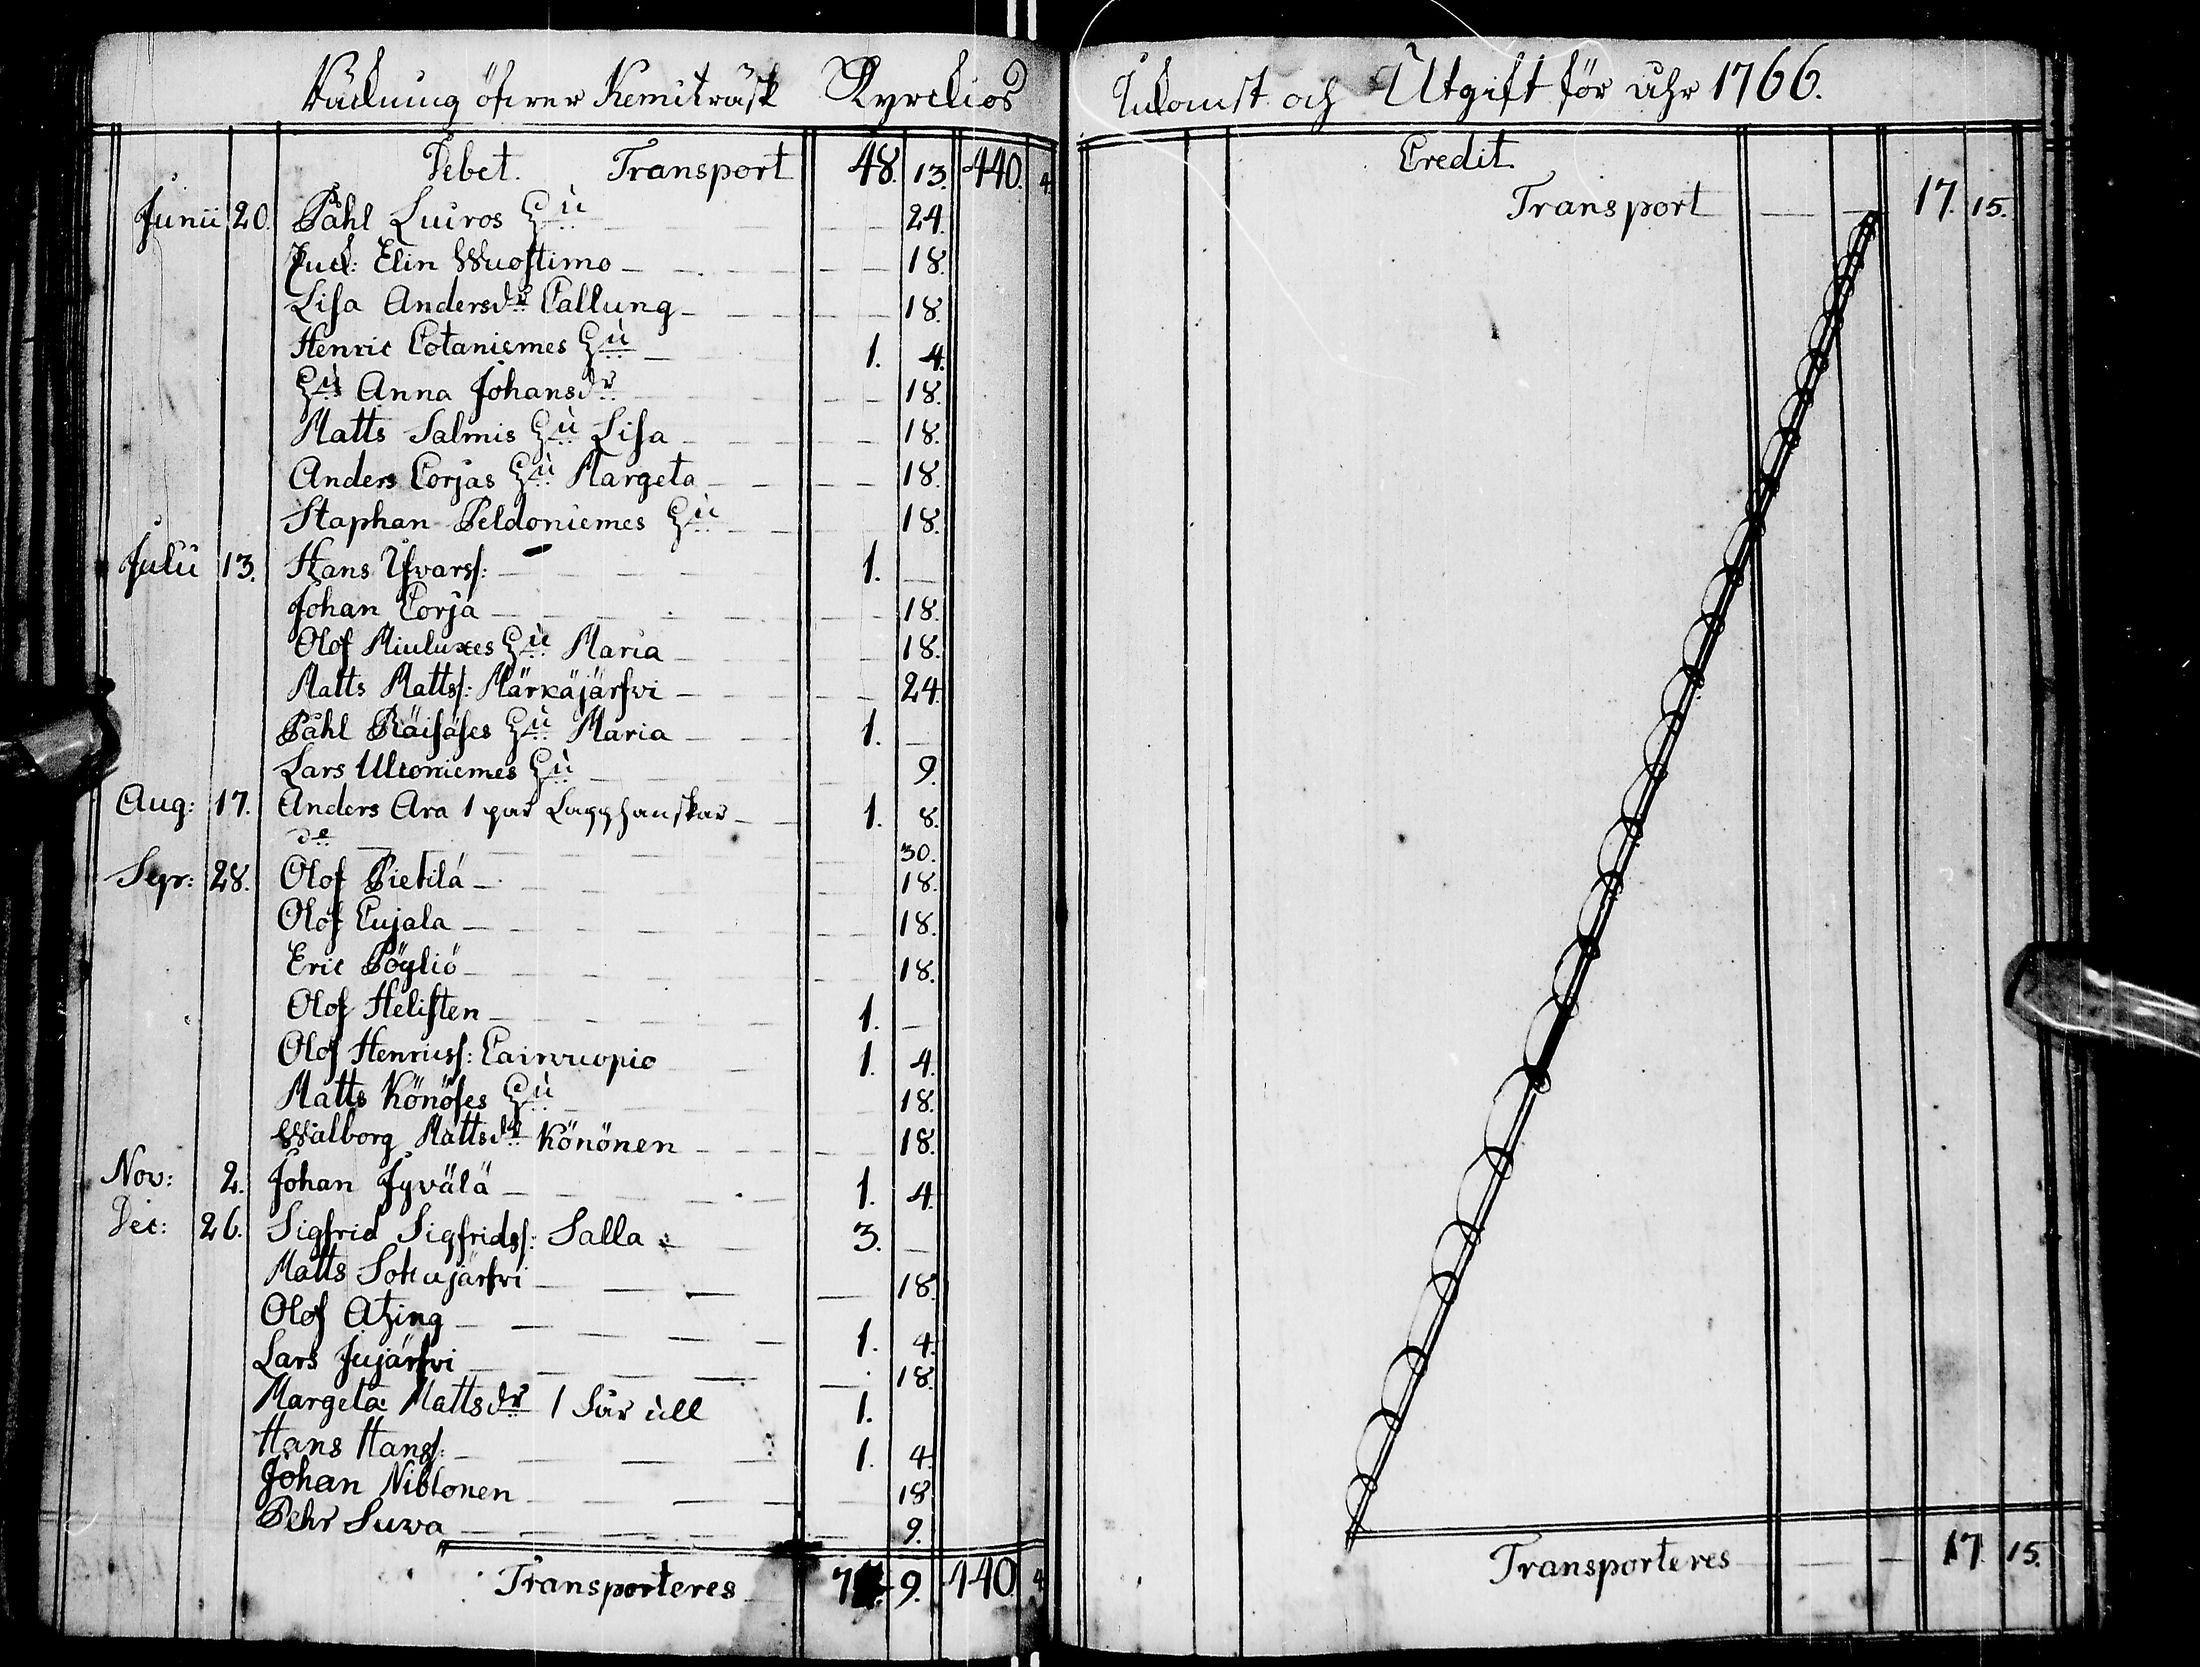 Räkning öfwer Kemiträsk Kyrckios
Debet. Transport 48. 13. 440. 4.
Junii 20. Påhl Luiros Hu 24.
Pud: Elin Wuostimo 18.
Lisa Andersdr Callung 18.
Henric Cotaniemes Hu 1. 4.
Hu Anna Johansdr 18.
Matts Salmis Hu Lisa 18.
Anders Corjas Hu Margeta 18.
Staphan Peldoniemes Hu 18.
Julii 13. Hans Ifvarss: 1.
Johan Corja 18.
Olof Miuluxes Hu Maria 18.
Matts Mattss: Märkäjärfwi 24.
Påhl Räisäses Hu Maria 1.
Lars Ulconiemes Hu 9.
Aug: 17. Anders Ara 1 par Lapphanskar 1. 8.
do 30.
Sepr: 28. Olof Pietilä 18.
Olof Cujala 18.
Eric Pöyliö 18.
Olof Helisten 1.
Olof Henricss: Cairwuopio 1. 4.
Matts Könöses Hu 18.
Walborg Mattsdr Könönen 18.
Nov: 2. Johan Jyvälä 1. 4.
Dec: 26. Sigfrid Sigfridss: Salla 3.
Matts Sokujärfvi 18.
Olof Atzing 1. 4.
Lars Jujärfvi 18.
Margeta Mattsdr 1 ull 1.
Hans Hanss: 1. 4.
Johan Niblonen 18
Pehr Suwa 9.
Transporteres 9. 440. 4
Inkomst och Utgift för åhr 1766.
Credit.
Transport 17. 15.
Transporteres 17. 15.